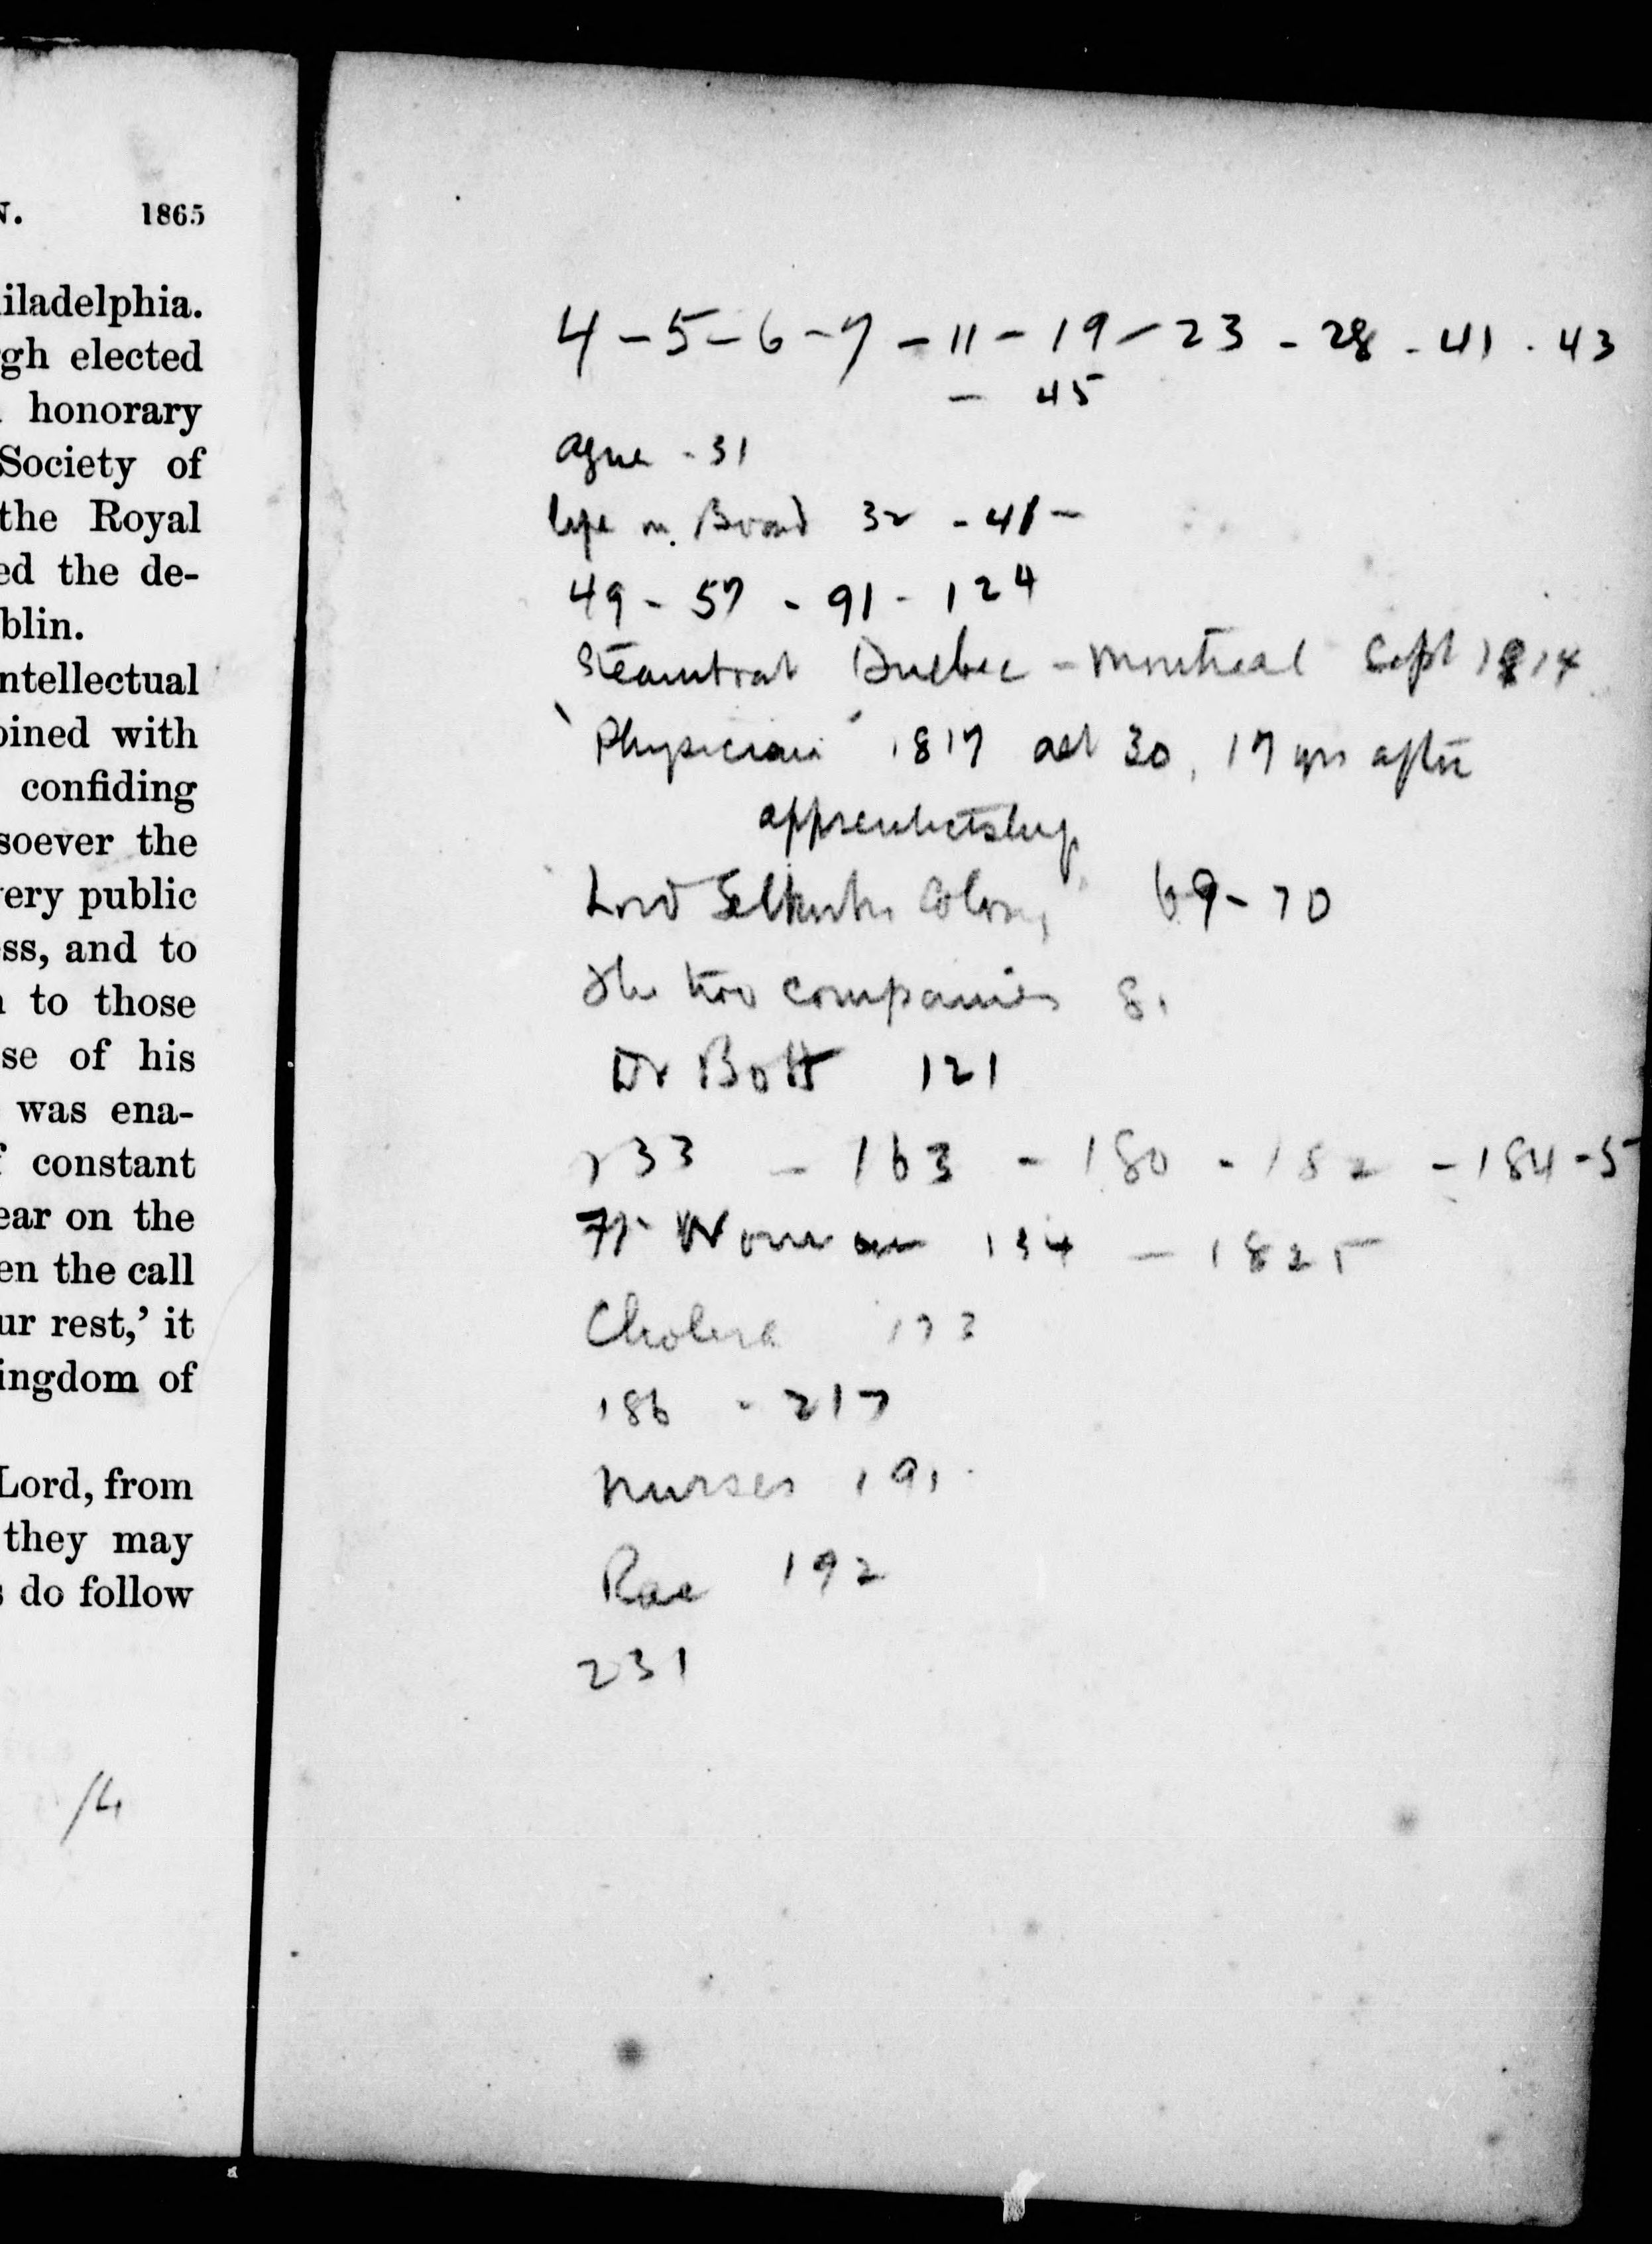 N. 1865
iladelphia.
gh elected
honorary
Society of
the Royal
ed the de-
blin.
ntellectual
oined with
confiding
soever the
very public
ss, and to
to those
se of his
was ena-
constant
ear on the
en the call
ur rest,' it
ingdom of
Lord, from
they may
do follow
4 - 5 - 6 - 7 - 11 - 19 - 23 - 28 - 41 . 43
- 45
ague - 31
life on Board 32 - 41 -
49 - 57 - 91 - 124
Steamboat Quebec - Montreal Sept 1814
Physician 1817 aet 30, 17 yrs after
apprenticeship
Lord Selkirks Colony 69-70
The two companies 81
Dr Bott 121
133 - 163 - 180 - 182 - 184-5
Fr Woman 134 - 1825
Cholera 173
186 - 217
Nurses 191
Rae 192
231